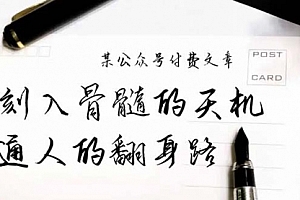 某公众号付费文章
POST
CARD
刻入骨髓的天机
通人的翻身路